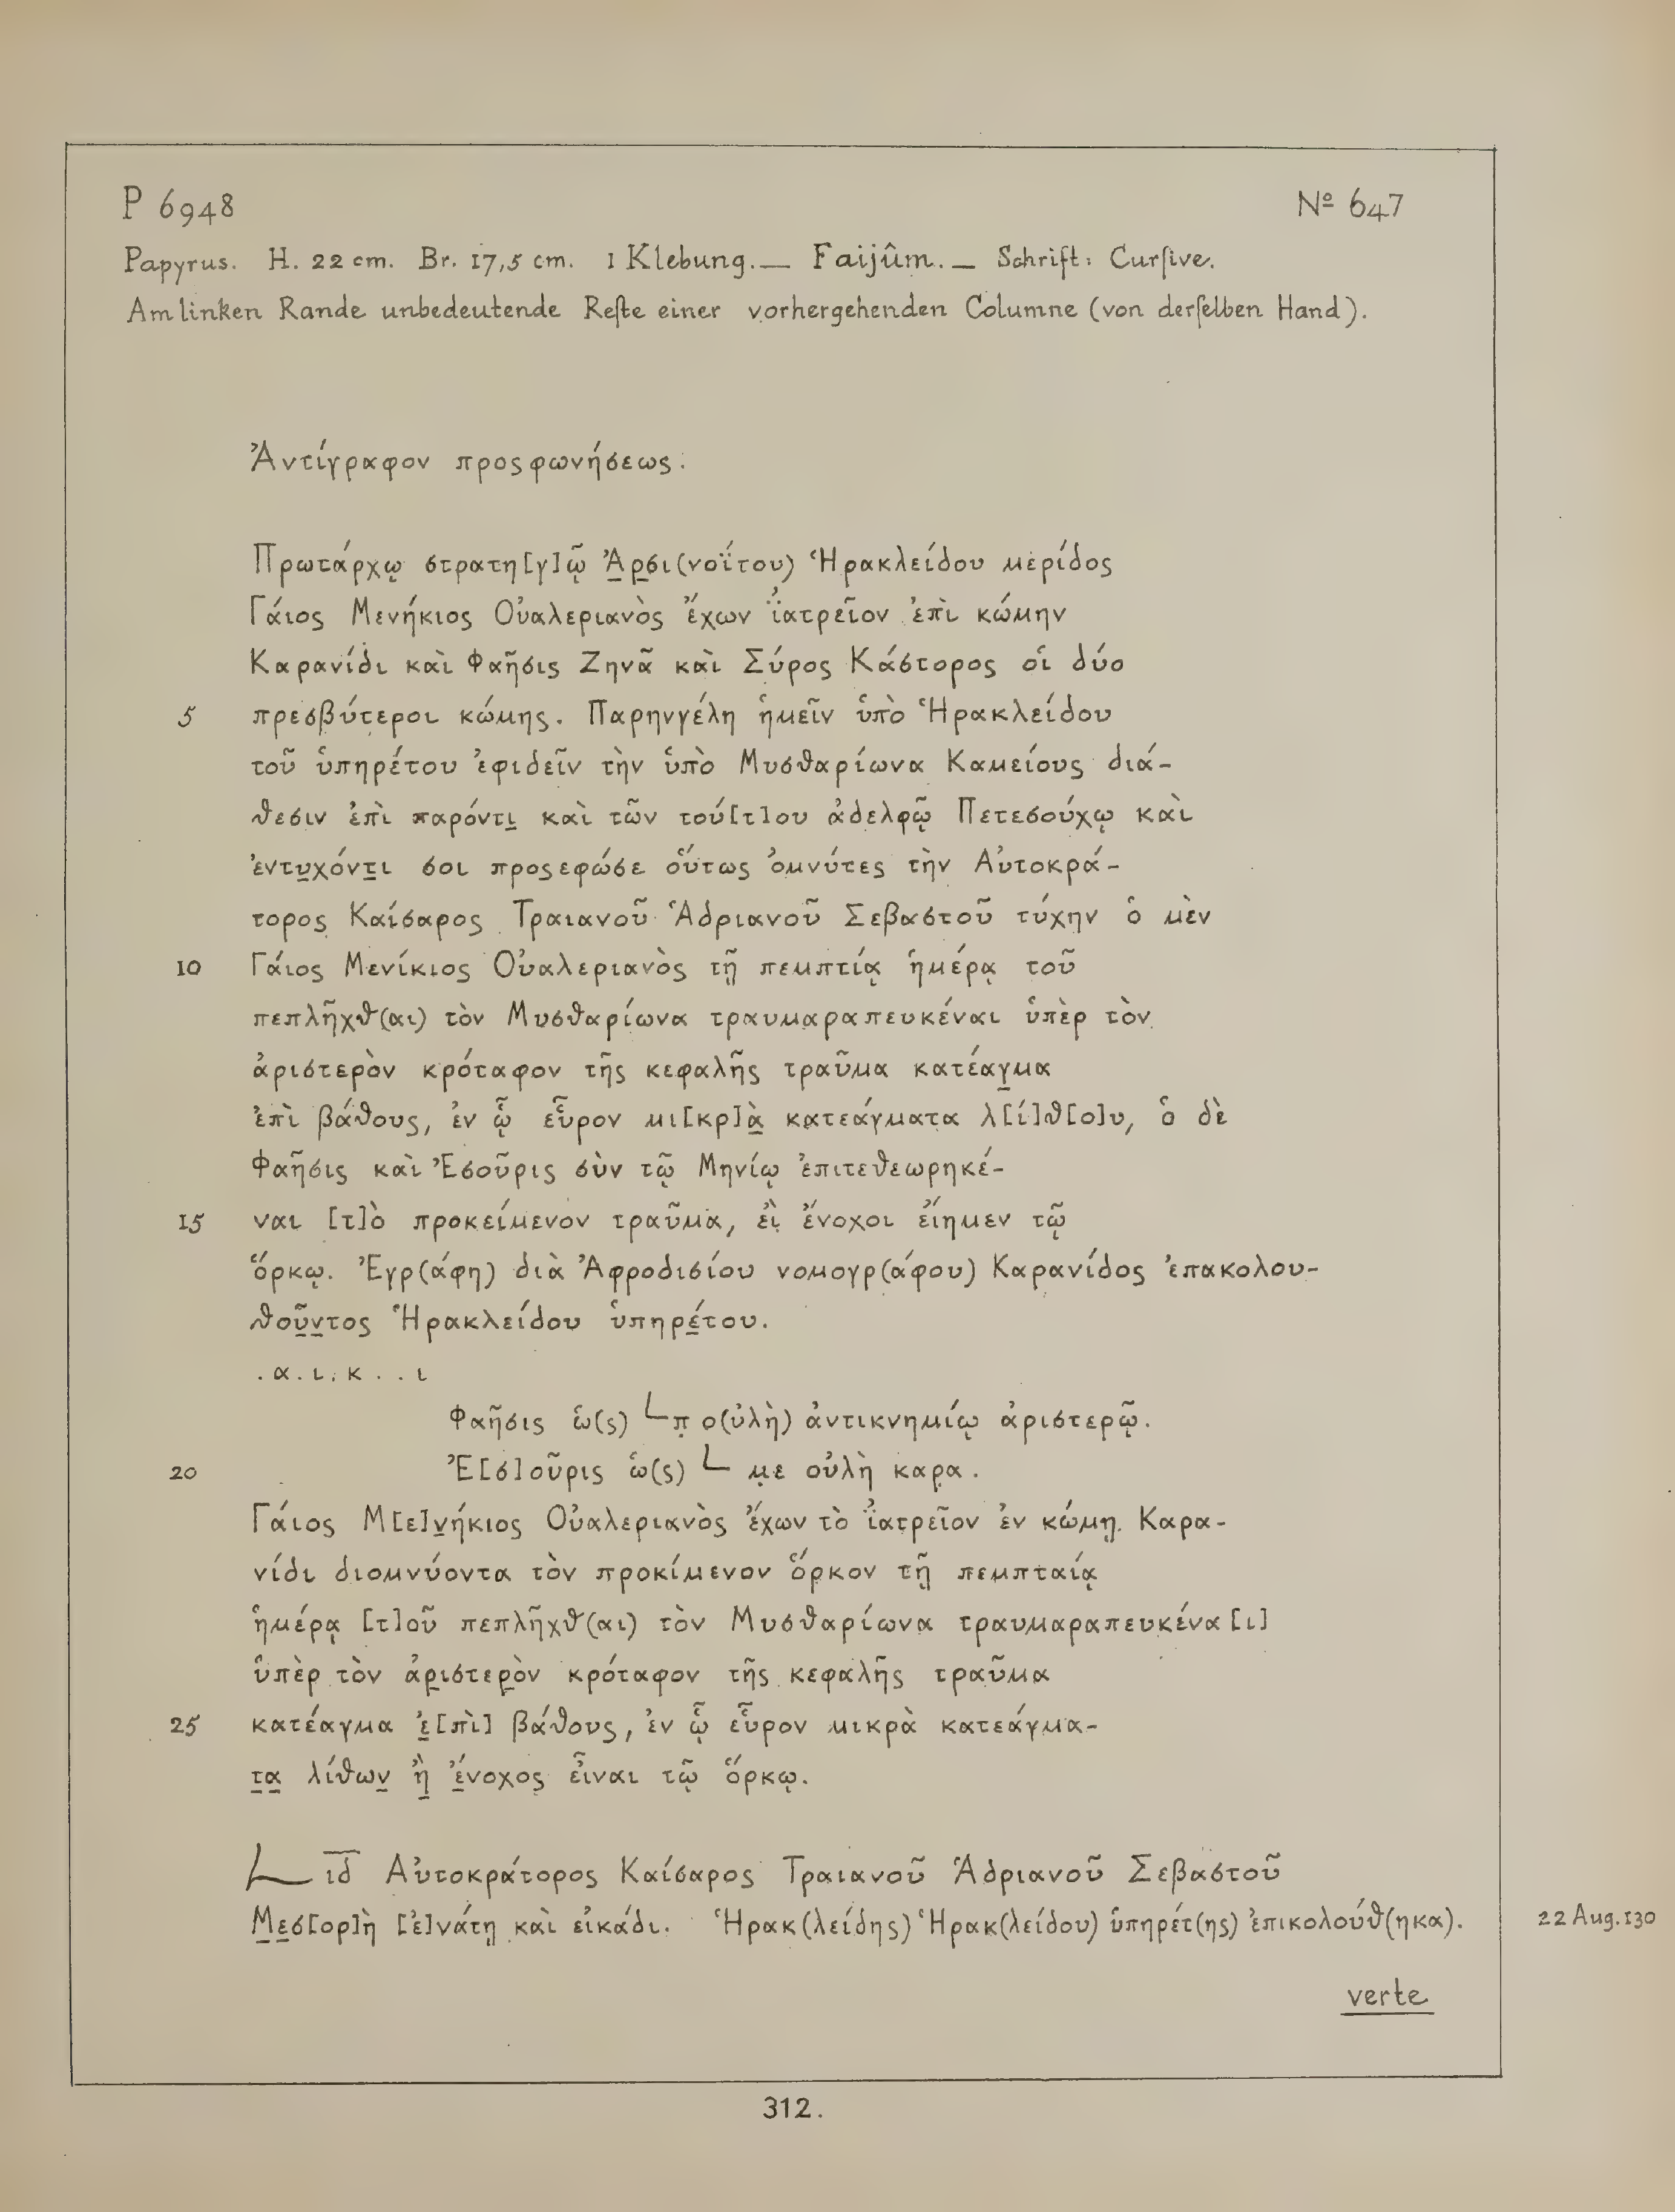 P 6948 Nº 647
Papyrus. H. 22 cm. Br. 17,5 cm. 1 Klebung. — Faijûm. — Schrift: Curſive.
Am linken Rande unbedeutende Reſte einer vorhergehenden Columne (von derſelben Hand).
Ἀντίγραφον προςφωνήσεως.
Πρωτάρχῳ στρατη[γ]ῷ Ἀ̲ρ̲σι(νοΐτου) Ἡρακλείδου μερίδος
Γάιος Μενήκιος Οὐαλεριανὸς ἔχων ἰ̈ατρεῖον ἐπὶ κώμην
Καρανίδι καὶ Φαῆσις Ζηνᾶ καὶ Σύρος Κάστορος οἱ δύο
5 πρεσβύτεροι κώμης. Παρηνγέλη ἡμεῖν ὑπὸ Ἡρακλείδου
τοῦ ὑπηρέτου ἐφιδεῖν τὴν ὑπὸ Μυσθαρίωνα Καμείους διά-
θεσιν ἐπὶ παρόντι̲ καὶ τῶν τού[τ]ου ἀδελφῷ Πετεσούχῳ καὶ
ἐντυ̲χόντ̲ι σοι προςεφώσε οὕτως ὀμνύτες τὴν Αὐτοκρά-
τορος Καίσαρος Τραιανοῦ Ἁδριανοῦ Σεβαστοῦ τύχην ὁ μὲν
10 Γάιος Μενίκιος Οὐαλεριανὸς τῇ πεμπτίᾳ ἡμέρᾳ τοῦ
πεπλῆχθ(αι) τὸν Μυσθαρίωνα τραυμαραπευκέναι ὑπὲρ τὸν
ἀριστερὸν κρόταφον τῆς κεφαλῆς τραῦμα κατέαγ̲μα
ἐπὶ βάθους, ἐν ᾧ εὗρον μι[κρ]ὰ̲ κατεάγματα λ[ί]θ[ο]υ, ὁ δὲ
Φαῆσις καὶ Ἐσοῦρις σὺν τῷ Μηνίῳ ἐπιτεθεωρηκέ-
15 ναι [τ]ὸ προκείμενον τραῦμα, ἐὶ ἔνοχοι εἴημεν τῷ
ὅρκῳ. Ἐγρ(άφη) διὰ Ἀφροδισίου νομογρ(άφου) Καρανίδος ἐπακολου-
θοῦ̲ν̲τος Ἡρακλείδου ὑπηρέ̲του.
. α . ι . κ . . ι
Φαῆσις ὡ(ς) 𐅹 π̣ ο(ὐλὴ) ἀντικνημίῳ ἀριστερῷ.
20 Ἐ[σ]οῦρις ὡ(ς) 𐅹 μ̣ε οὐλὴ καρ̣α .
Γάιος Μ[ε]ν̲ήκιος Οὐαλεριανὸς ἔχων τὸ ἰ̈ατρεῖον ἐν κώμῃ Καρα-
νίδι διομνύοντα τὸν προκίμενον ὅρκον τῇ πεμπταίᾳ
ἡμέρᾳ [τ]οῦ πεπλῆχθ(αι) τὸν Μυσθαρίωνα τραυμαραπευκένα[ι]
ὑπὲρ τὸν ἀρ̲ιστερ̲ὸν κρόταφον τῆς κεφαλῆς τραῦμα
25 κατέαγμα ἐ̲[πὶ] βάθους, ἐν ᾧ εὗρον μικρὰ κατεάγμα-
τ̲α̲ λίθων̲ ἢ̲ ἔ̲νοχος εἶναι τῷ ὅρκῳ.
𐅹 ι̅δ̅ Αὐτοκράτορος Καίσαρος Τραιανοῦ Ἁδριανοῦ Σεβαστοῦ
Μ̲ε̲σ[ορ]ὴ [ἐ]νάτῃ καὶ εἰκάδι. Ἡρακ(λείδης) Ἡρακ(λείδου) ὑπηρέτ(ης) ἐπικολούθ(ηκα). 22 Aug. 130
verte
312.